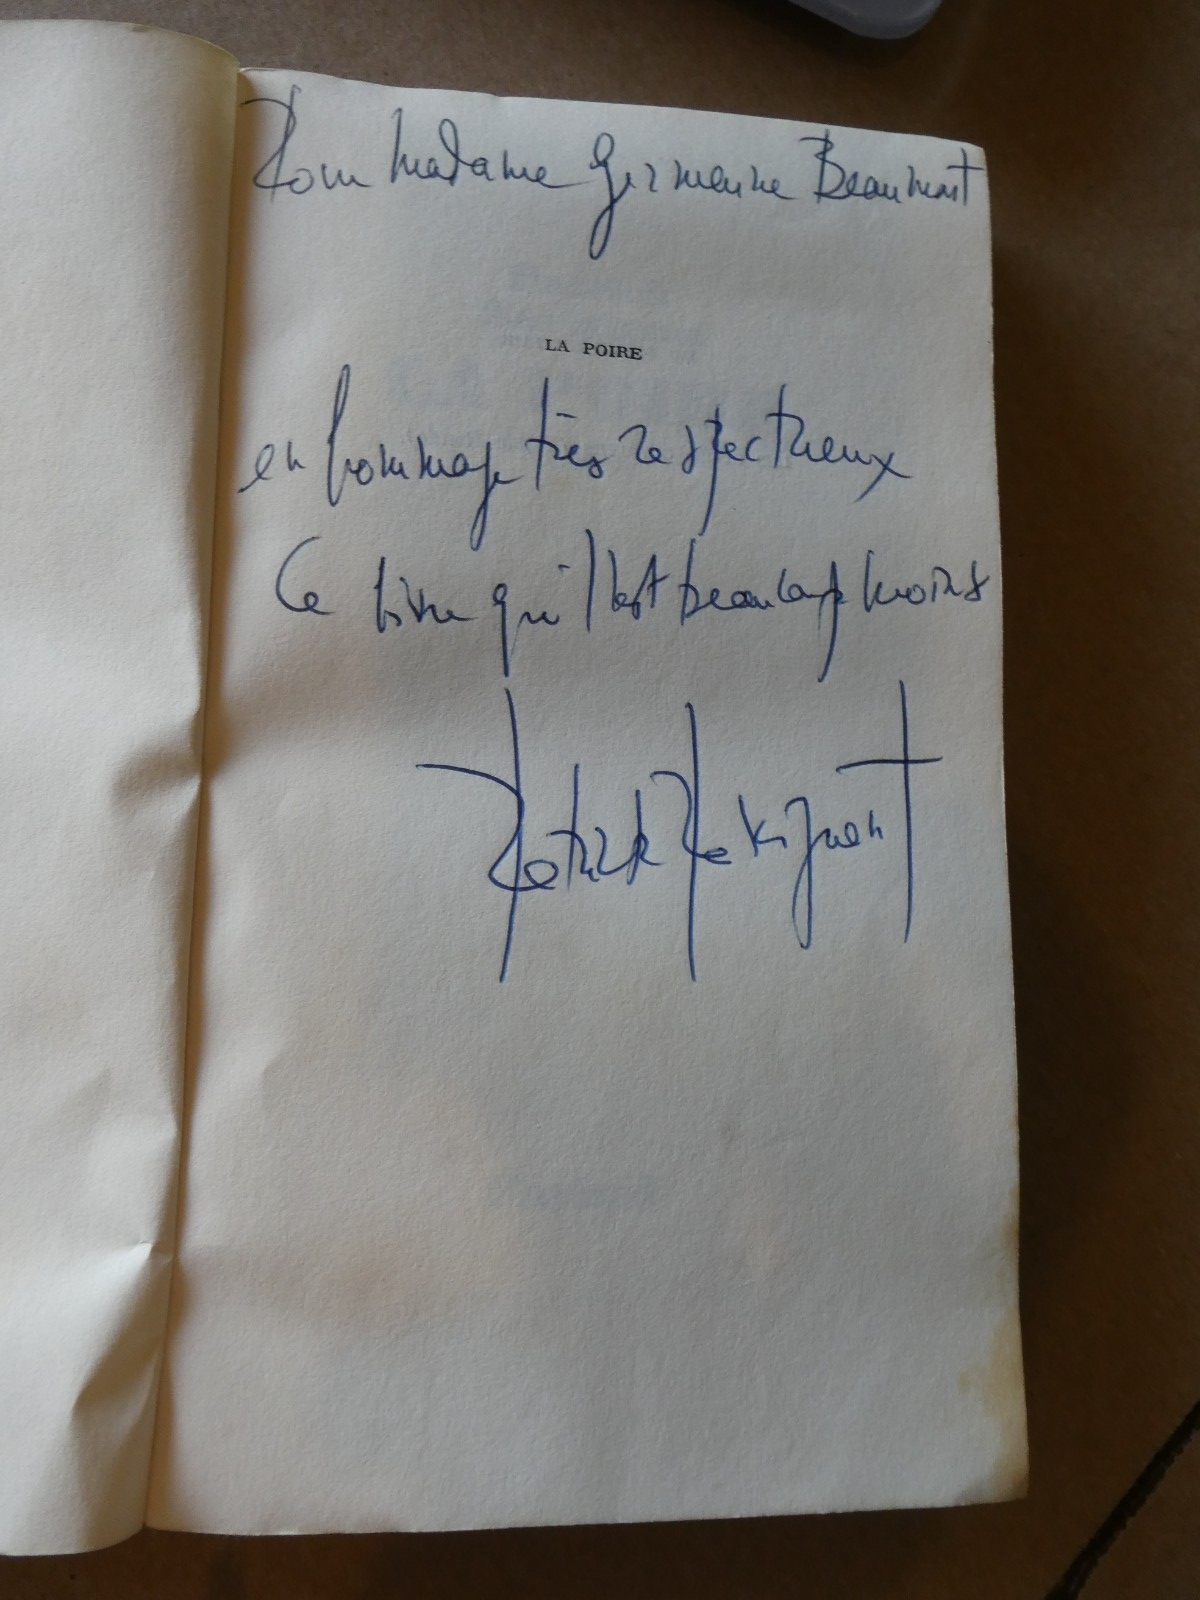 Pour Madame Germaine Beaumont
LA POIRE
en hommage très respectueux
Ce livre qui l'est beaucoup moins
Patrick Pesnot